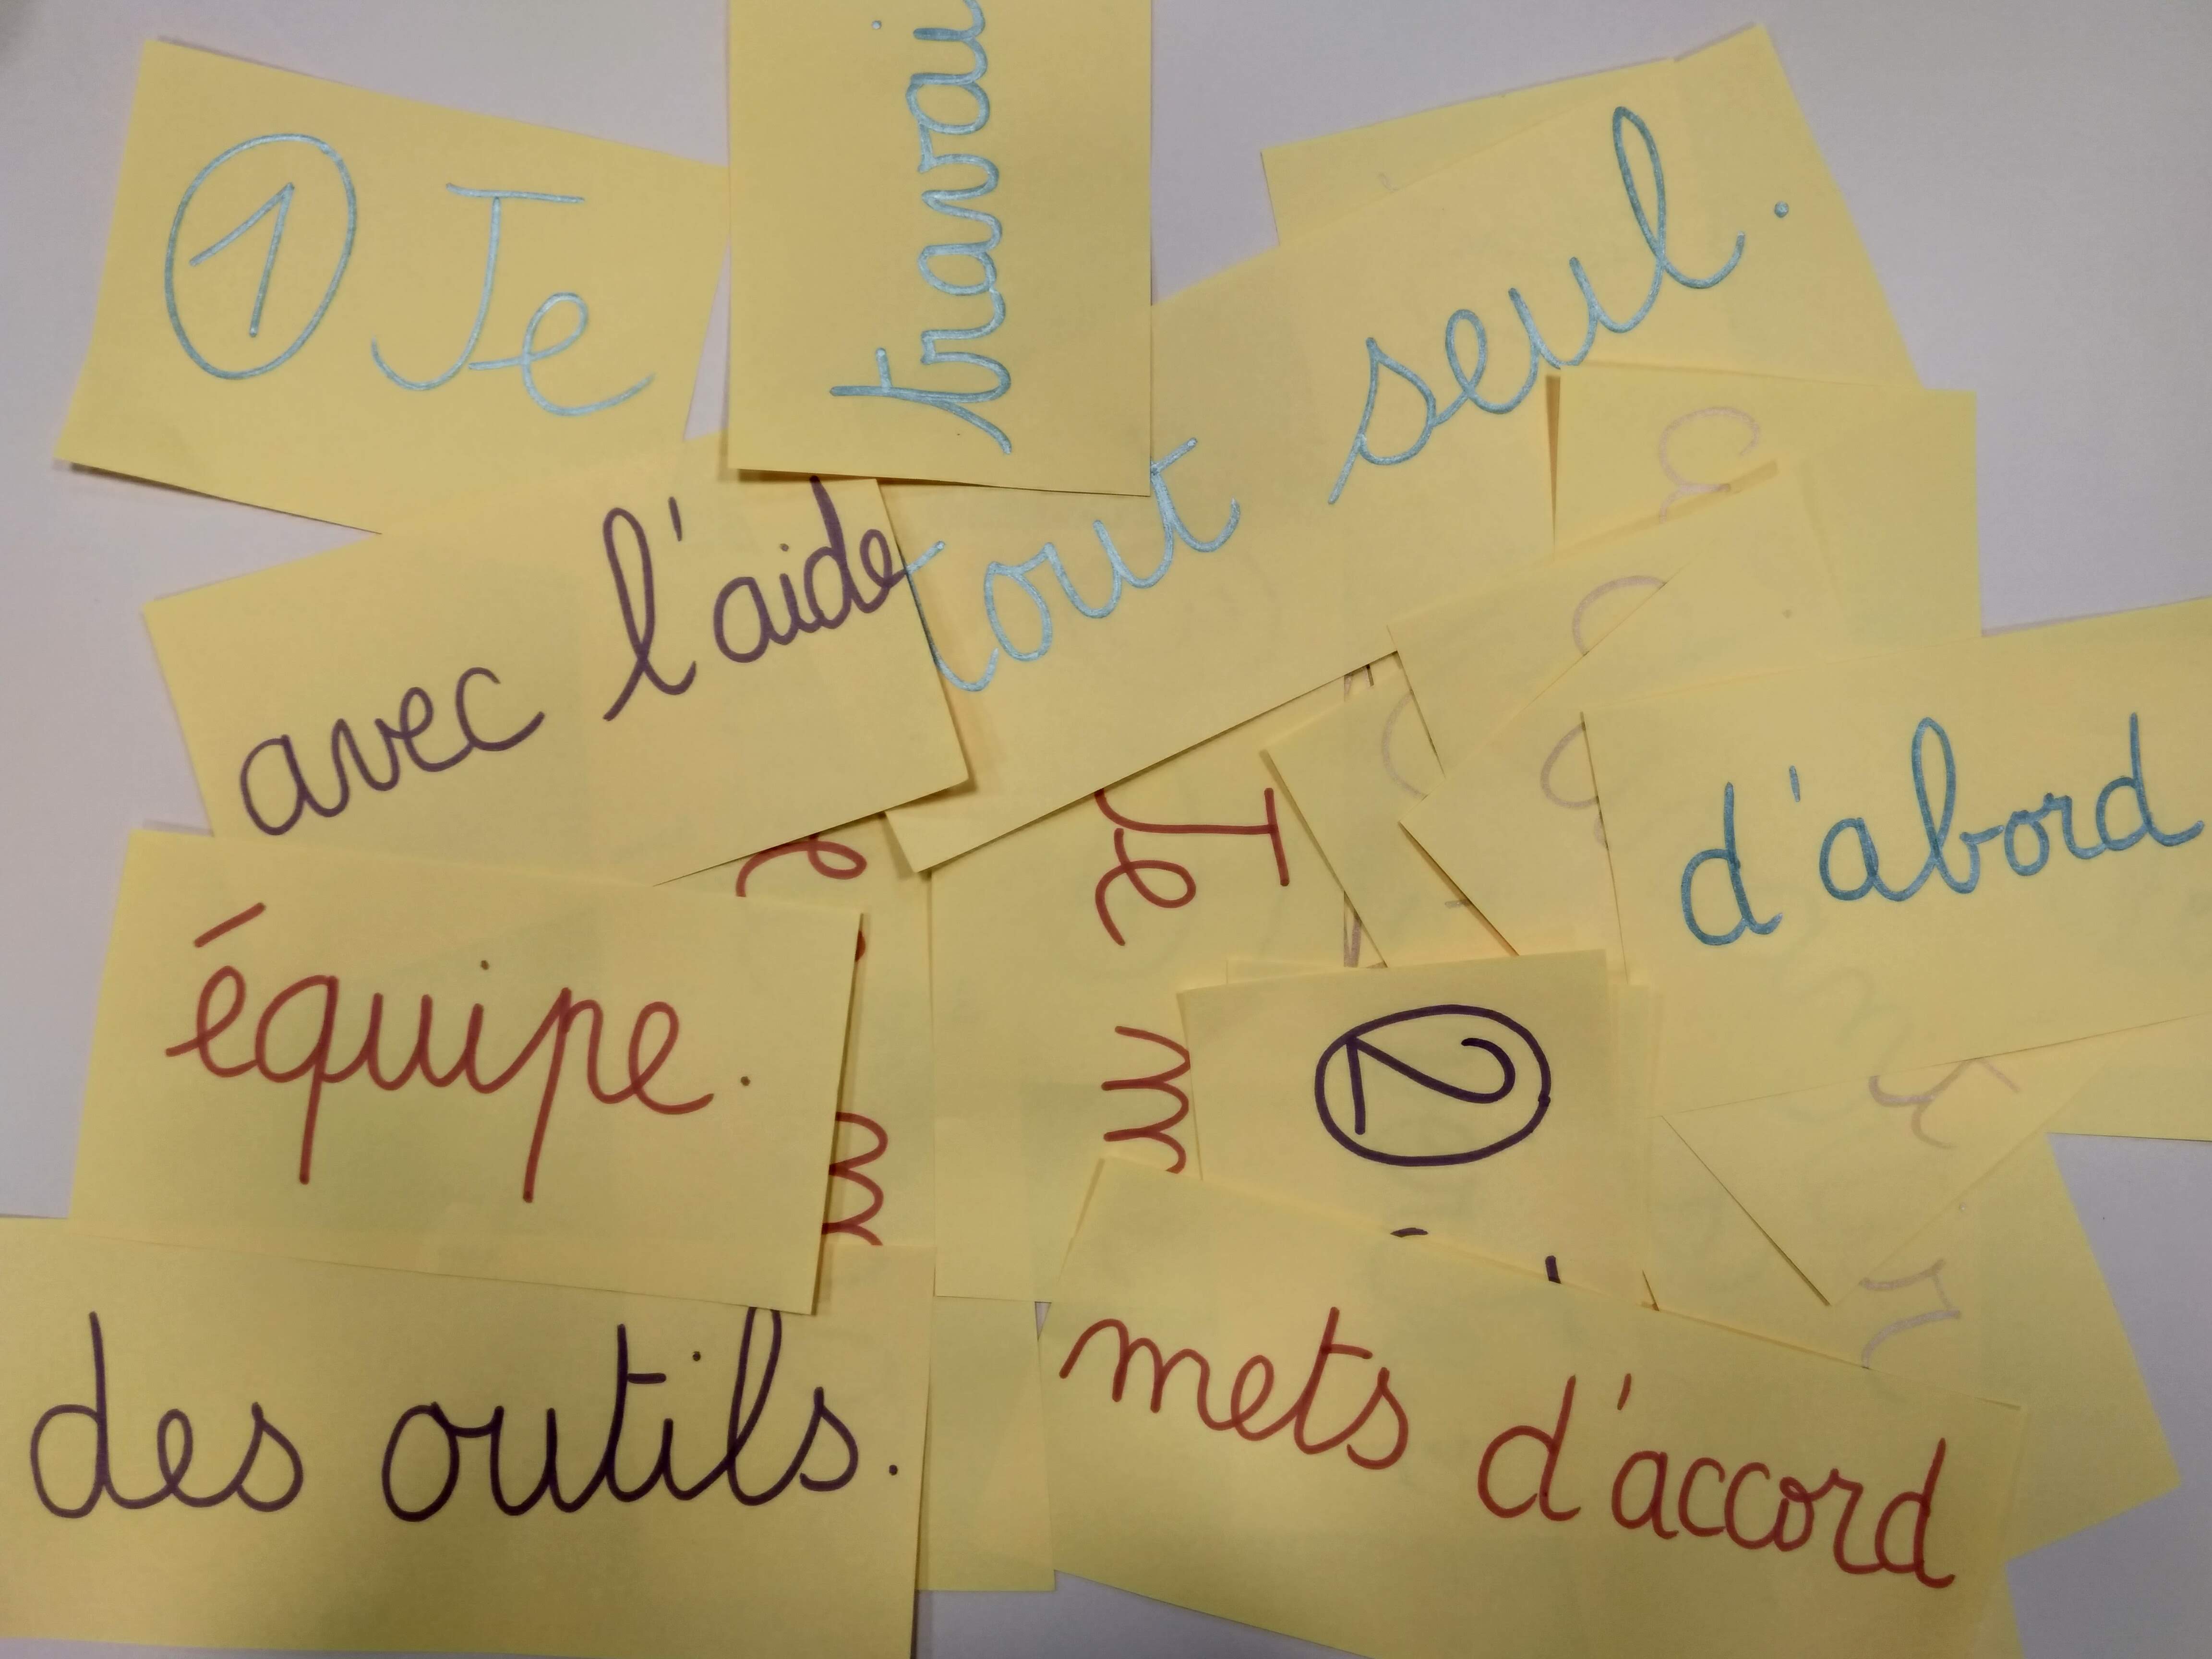 ① Je
travai
tout seul.
avec l'aide
d'abord
Je
équipe.
②
des outils.
mets d'accord